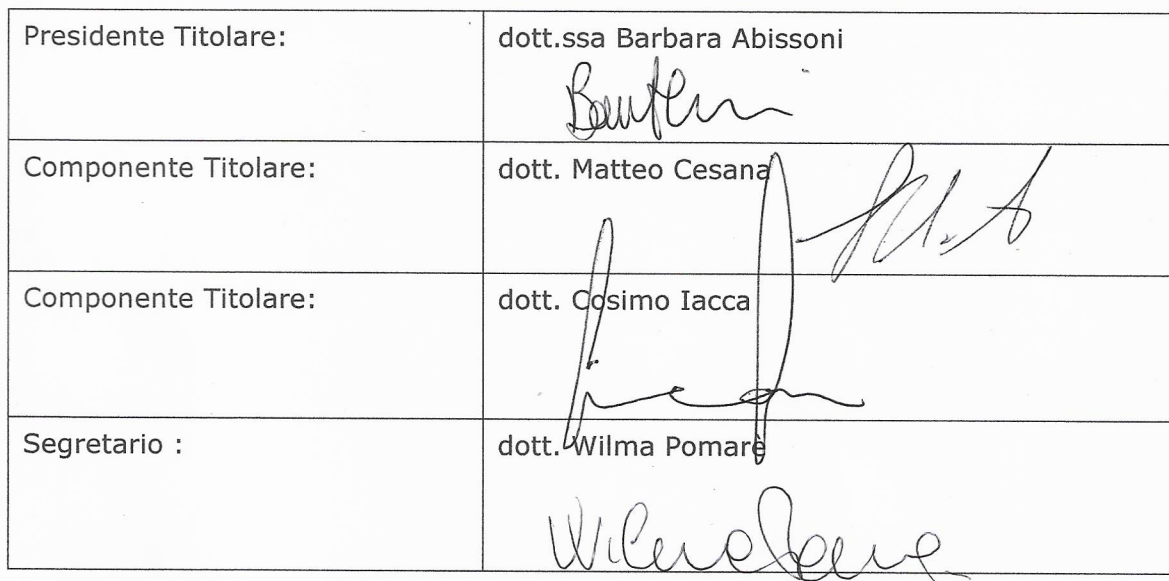 Presidente Titolare: dott.ssa Barbara Abissoni
Componente Titolare: dott. Matteo Cesana
Componente Titolare: dott. Cosimo Iacca
Segretario : dott. Wilma Pomarè